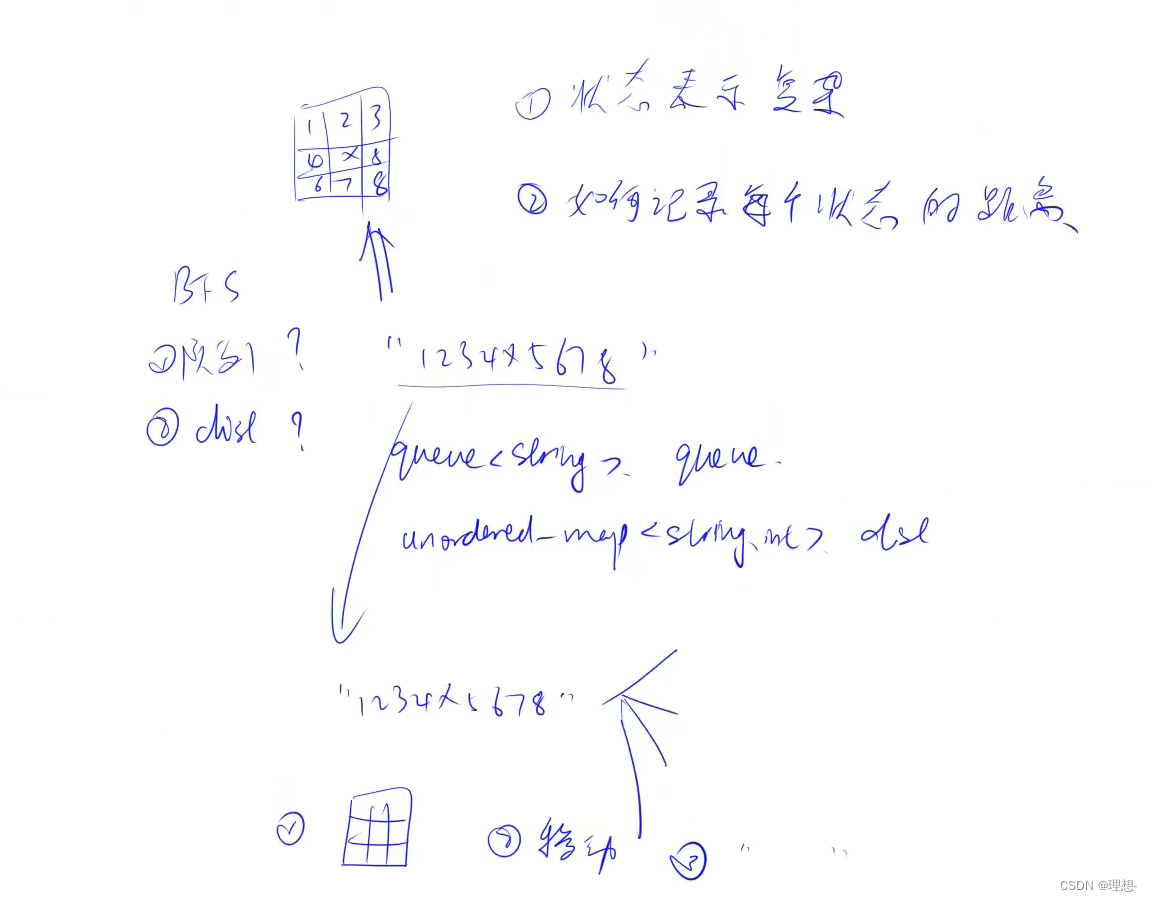 ① 状态表示复杂
1 2 3
4 x 8
6 7 8
② 如何记录每个状态的距离
BFS
① 队列 ?
"1234x5678"
② dist ?
queue<string> queue.
unordered_map<string, int> dist
"1234x5678"
①
② 移动
③ " "
CSDN @理想-